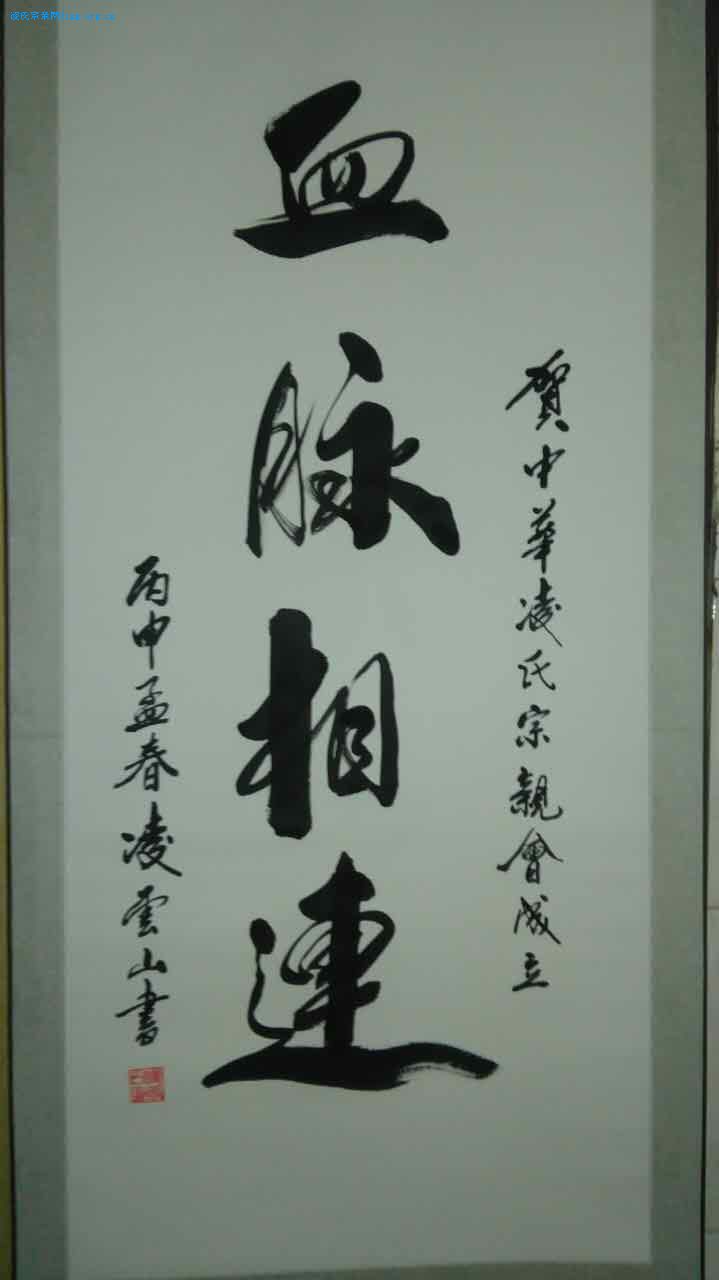 賀中華凌氏宗親會成立
血脉相連
丙申孟春凌雲山書